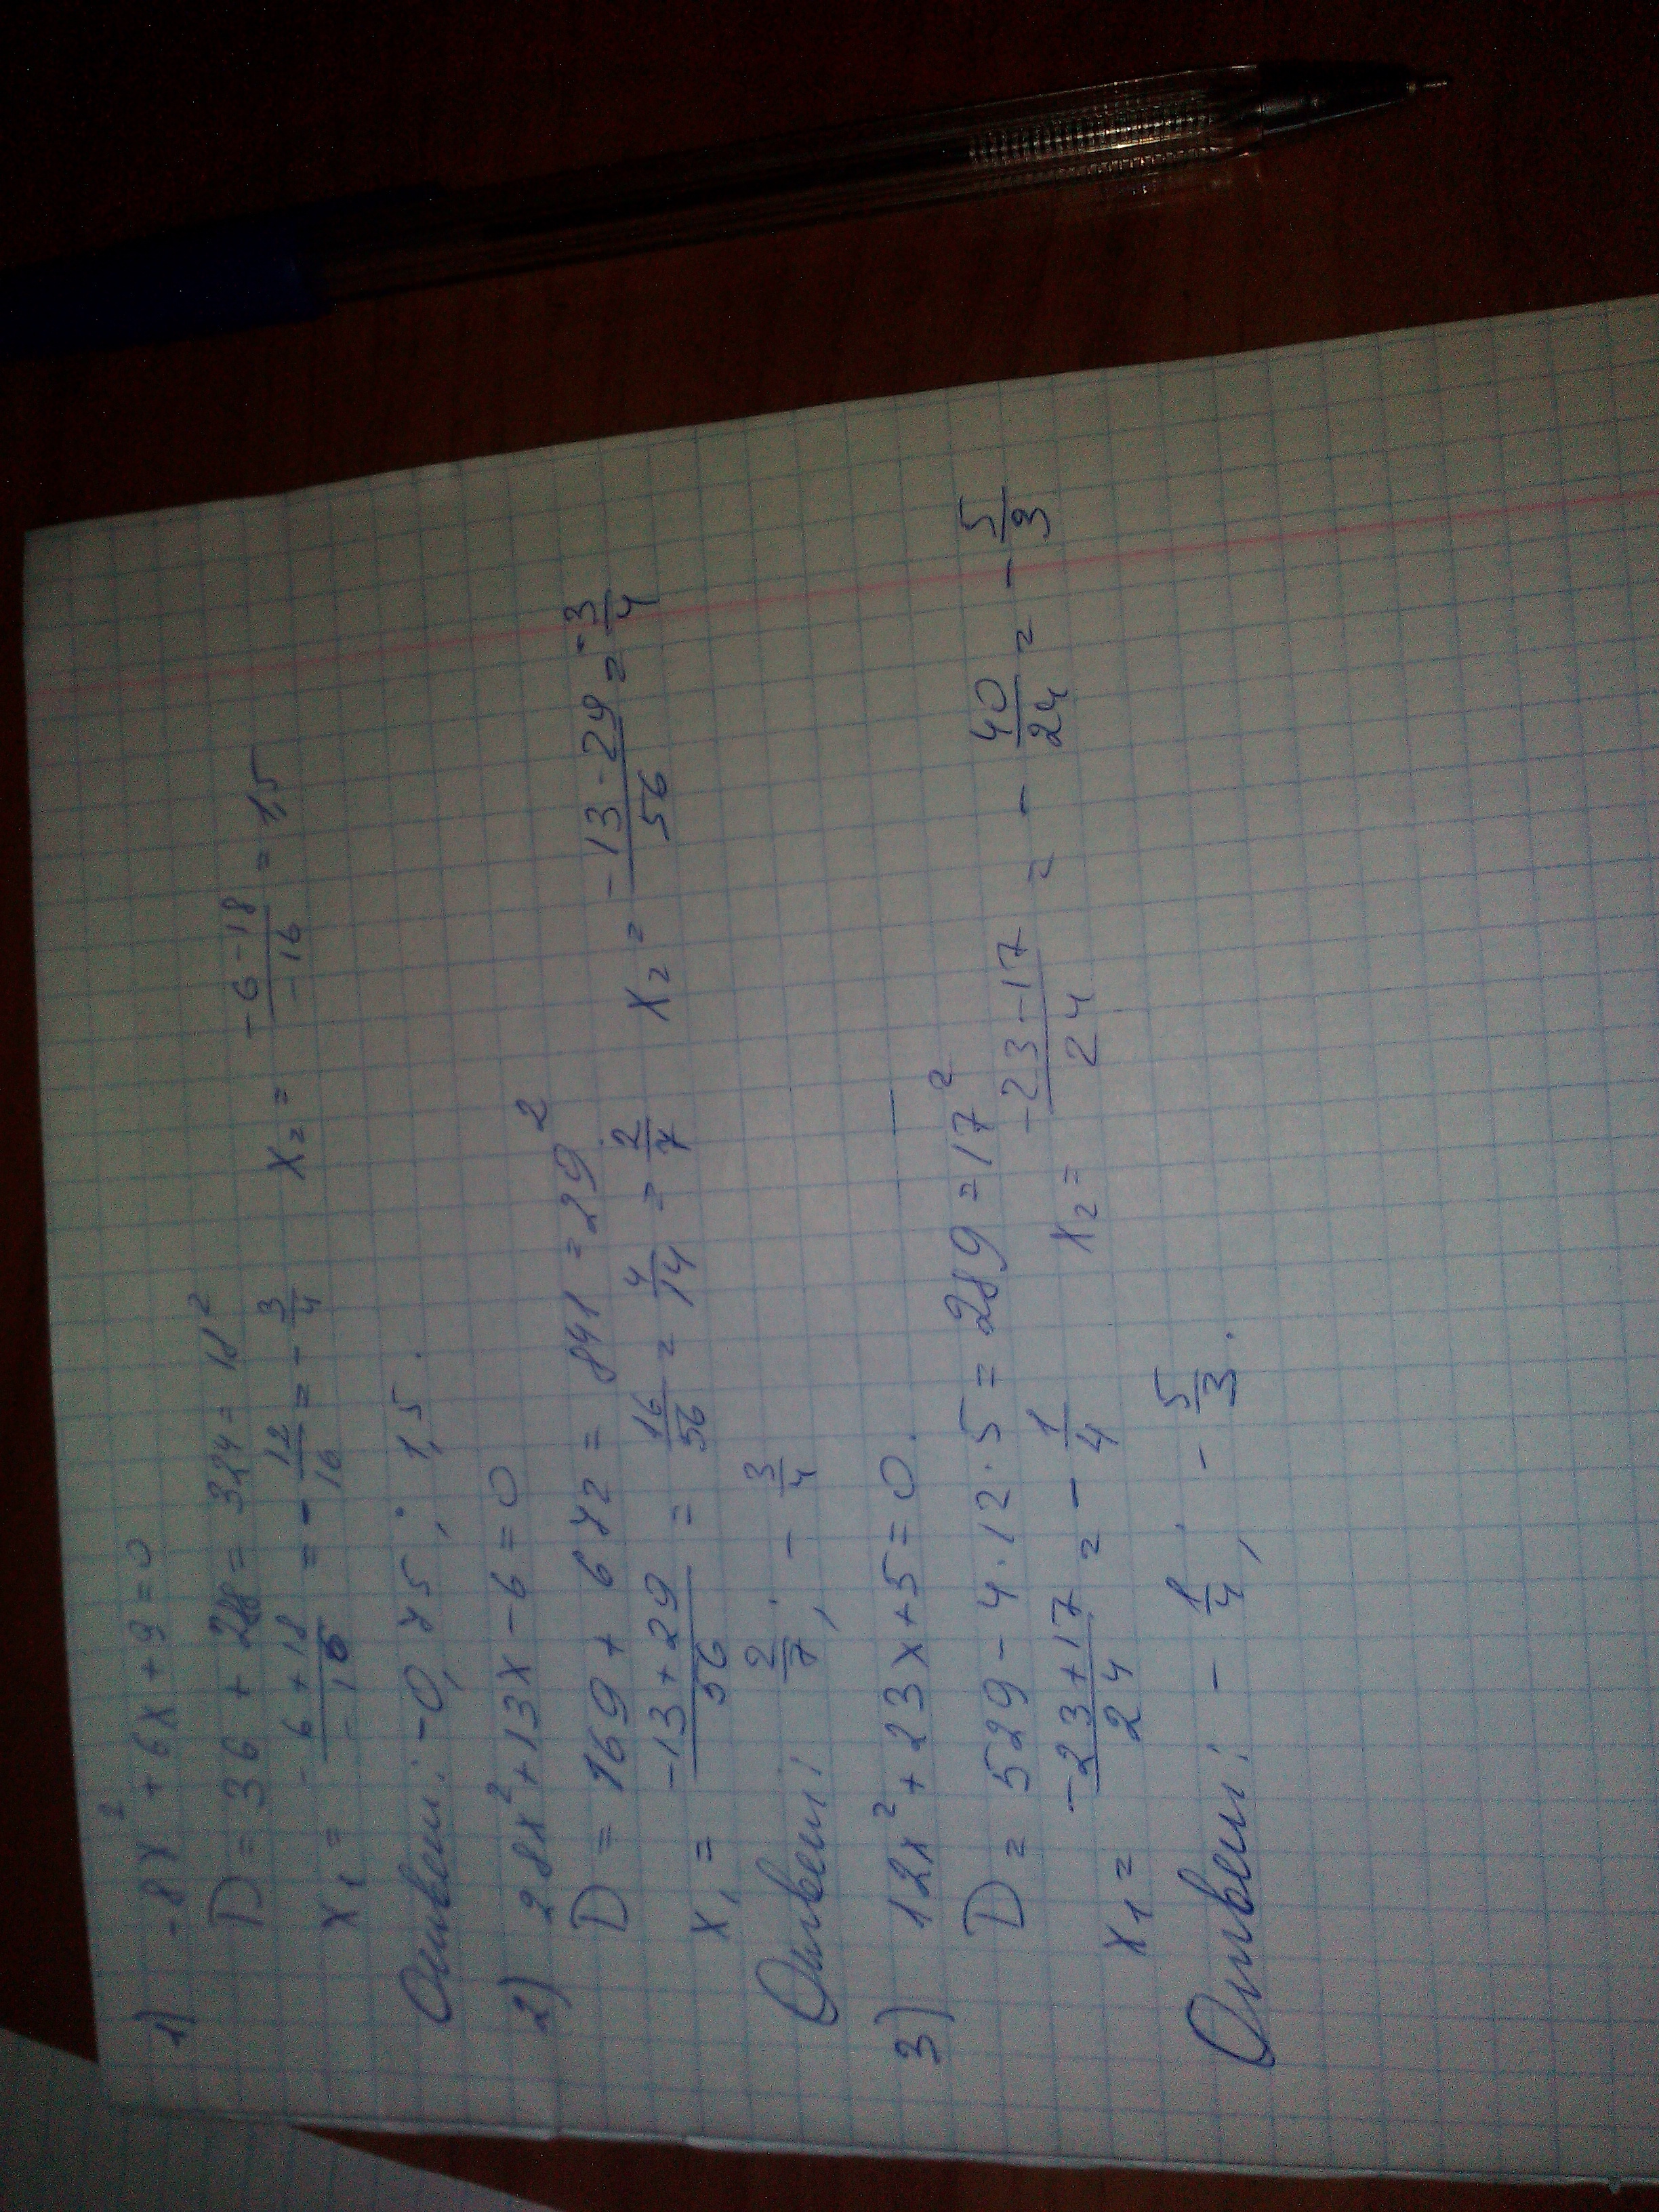 1) -8x² + 6x + 9 = 0
D = 36 + 288 = 324 = 18²
x₁ = (-6+18)/(-16) = -12/16 = -3/4   x₂ = (-6-18)/(-16) = 1,5
Ответ: -0,75; 1,5.
2) 28x² + 13x - 6 = 0
D = 169 + 672 = 841 = 29²
x₁ = (-13+29)/56 = 16/56 = 4/14 = 2/7   x₂ = (-13-29)/56 = -3/4
Ответ: 2/7; -3/4
3) 12x² + 23x + 5 = 0.
D = 529 - 4·12·5 = 289 = 17²
x₁ = (-23+17)/24 = -1/4   x₂ = (-23-17)/24 = -40/24 = -5/3
Ответ: -1/4; -5/3.